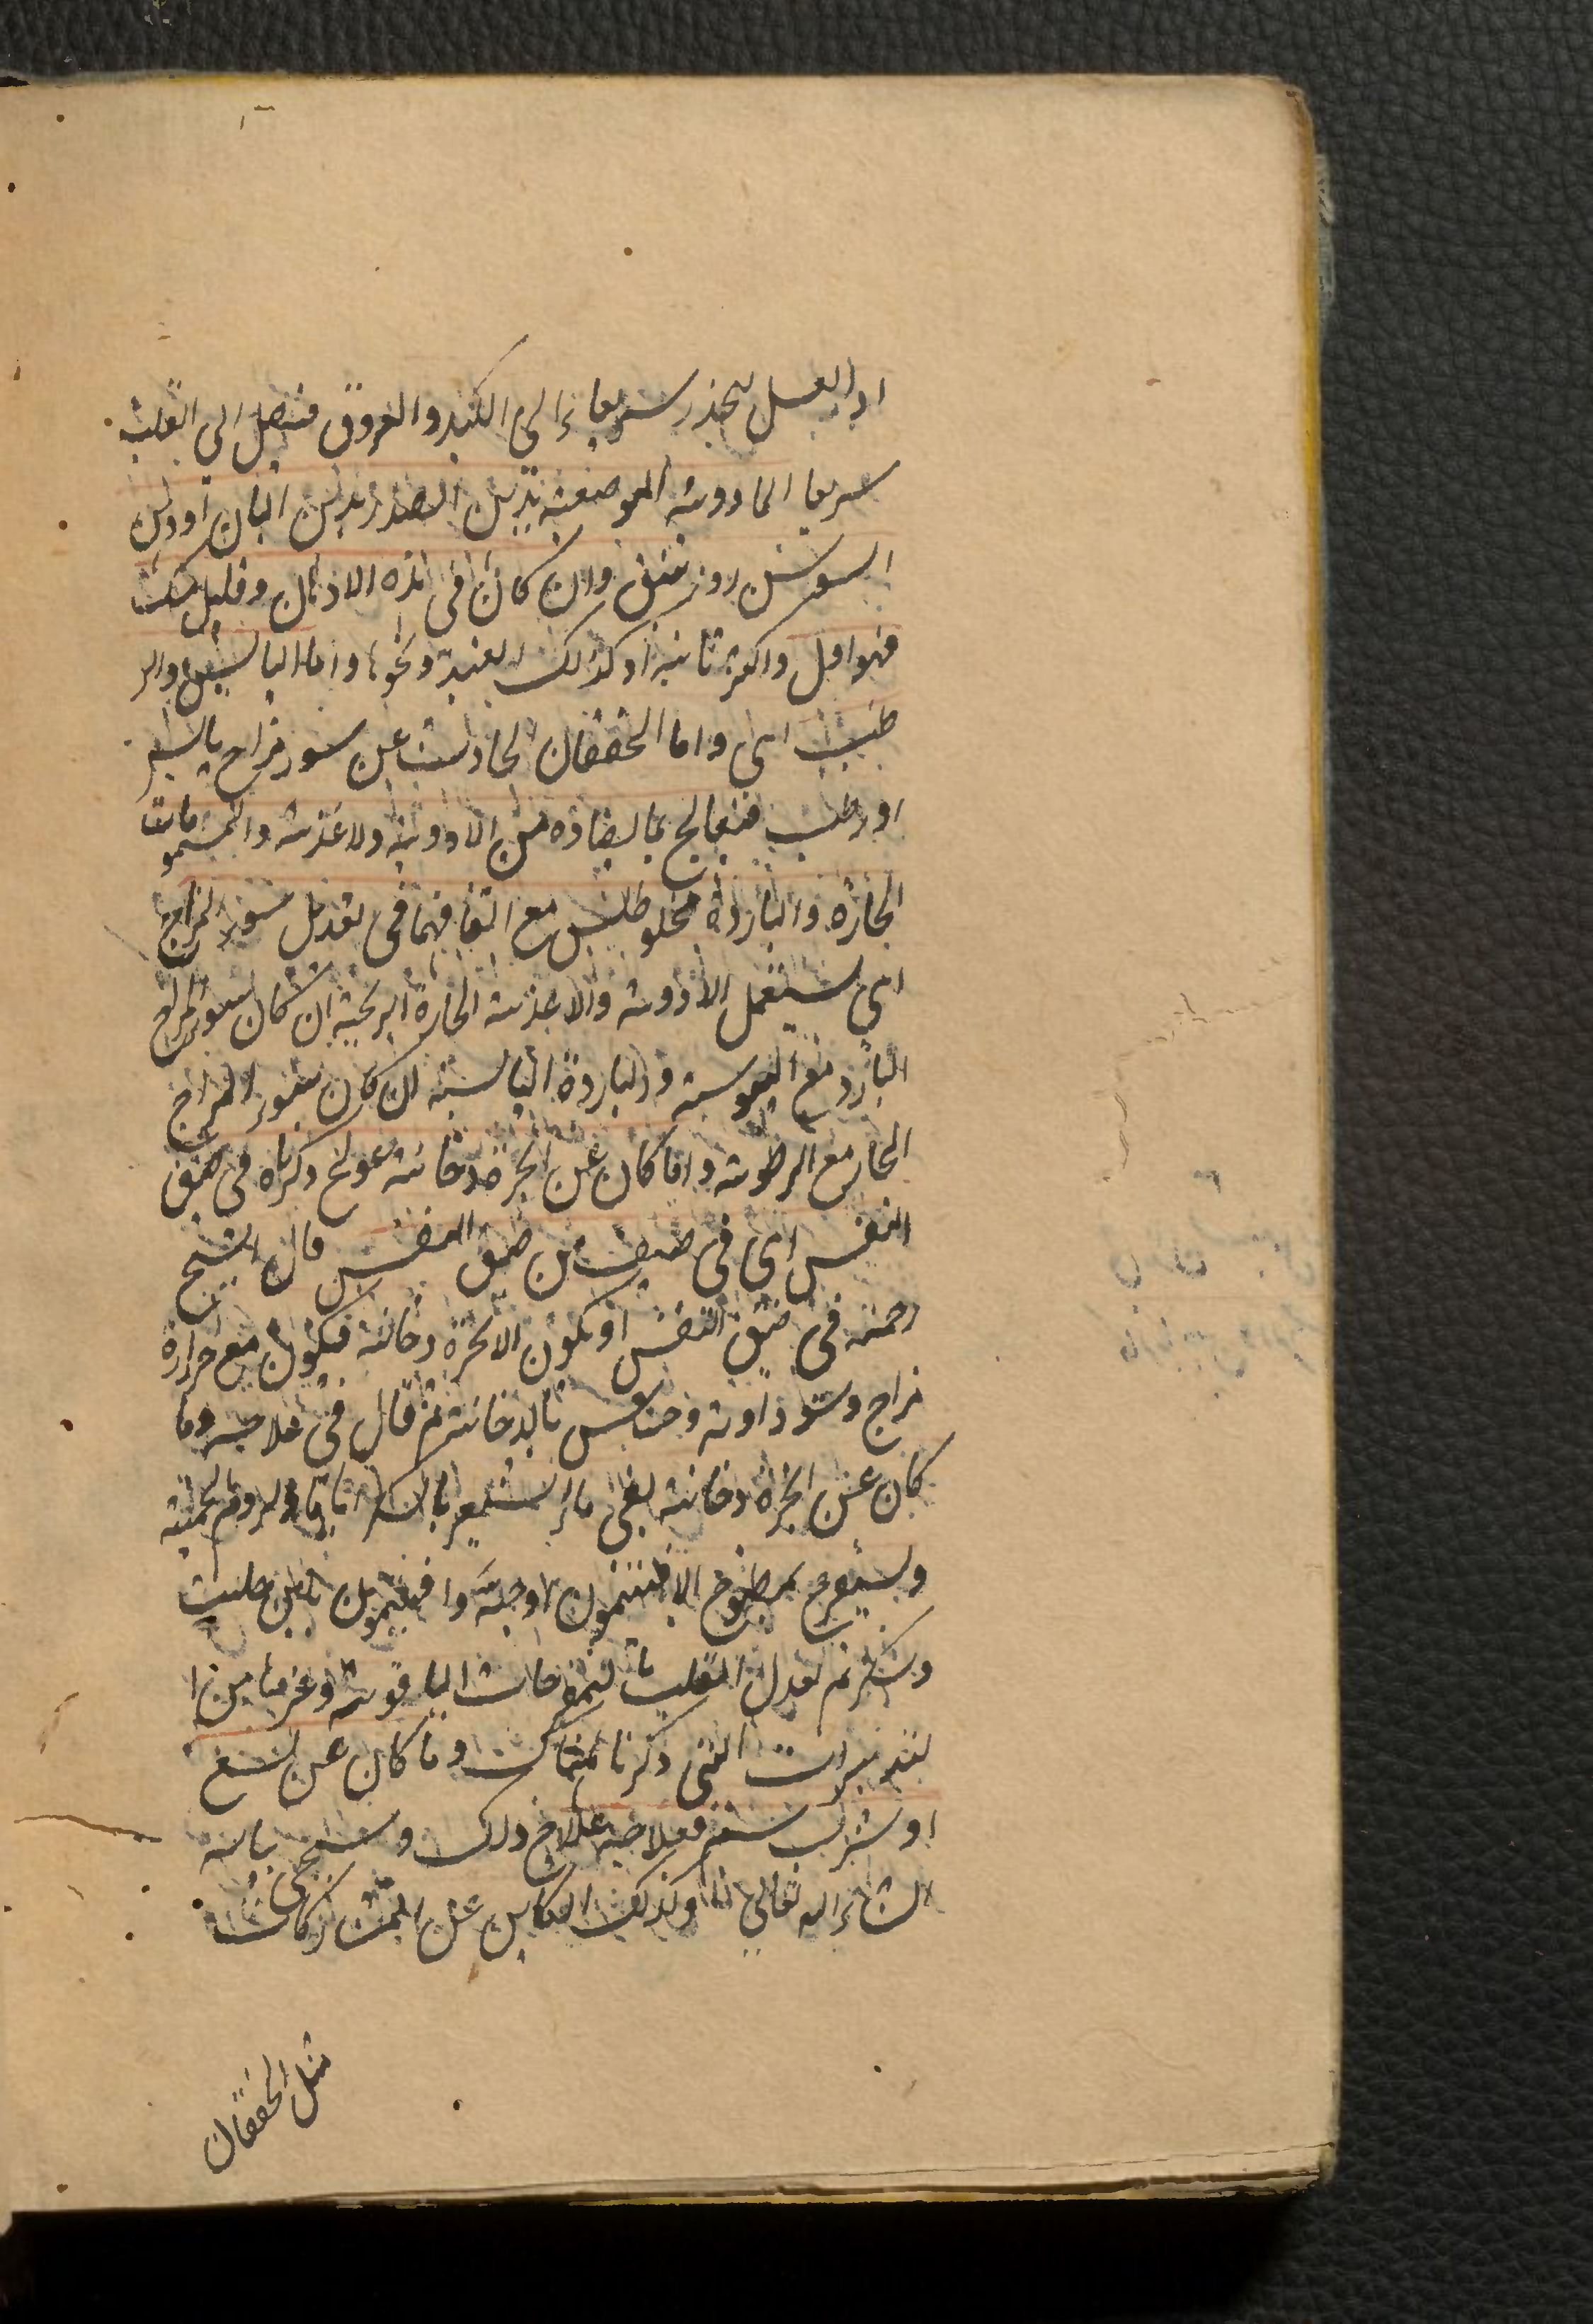 اذا العسل ينحذر سريعا الى الكبد والعروق فتصل الى القلب
سريعا الادوية الموضعية تدهن الصدر بدهن البان او دهن
السوسن روز تنفق وان كان فى هذه الادهان وقليل مسك
فهو اقل واكثر تاثيرا وكذلك العنبر ونحوها واما اليابس والر
طب اى واما الخفقان الحادث عن سوء مزاج يابس
او رطب فتعالج بما يضاده من الادوية ولاغذية والمشمومات
الحارة والباردة مخلوطين مع اتفاقهما فى تعديل سوء المزاج
اى يستعمل الادوية والاغذية الحارة ان كان سوء المزاج
البارد مع اليبوسة والباردة اليابسة ان كان سوء المزاج
الحار مع الرطوبة واما كان عن ابخرة دخانية عولج ذكرناه فى ضيق
النفس اى فى صنف من ضيق النفس قال الشيخ
رحمه فى ضيق النفس او يكون الابخرة دخانية فيكون مع حرارة
مزاج وسوداوية بالدخانية ثم قال فى علاجه وما
كان عن ابخرة دخانية بماء الشعير بالسكر
ويستفرغ بمطبوخ الافتيمون اوجبته وافتيمون بلبن حليب
وسكر ثم تعدل القلب بالمفرحات الياقوتية وغيرها من ا
لتدبيرات التى ذكرنا هناك وما كان عن لسع
او شرب سم فعلاجه علاج ذلك وسيجى بيانه
انشاء الله تعالى وكذلك الكاين عن المشاركات
مثل الخفقان